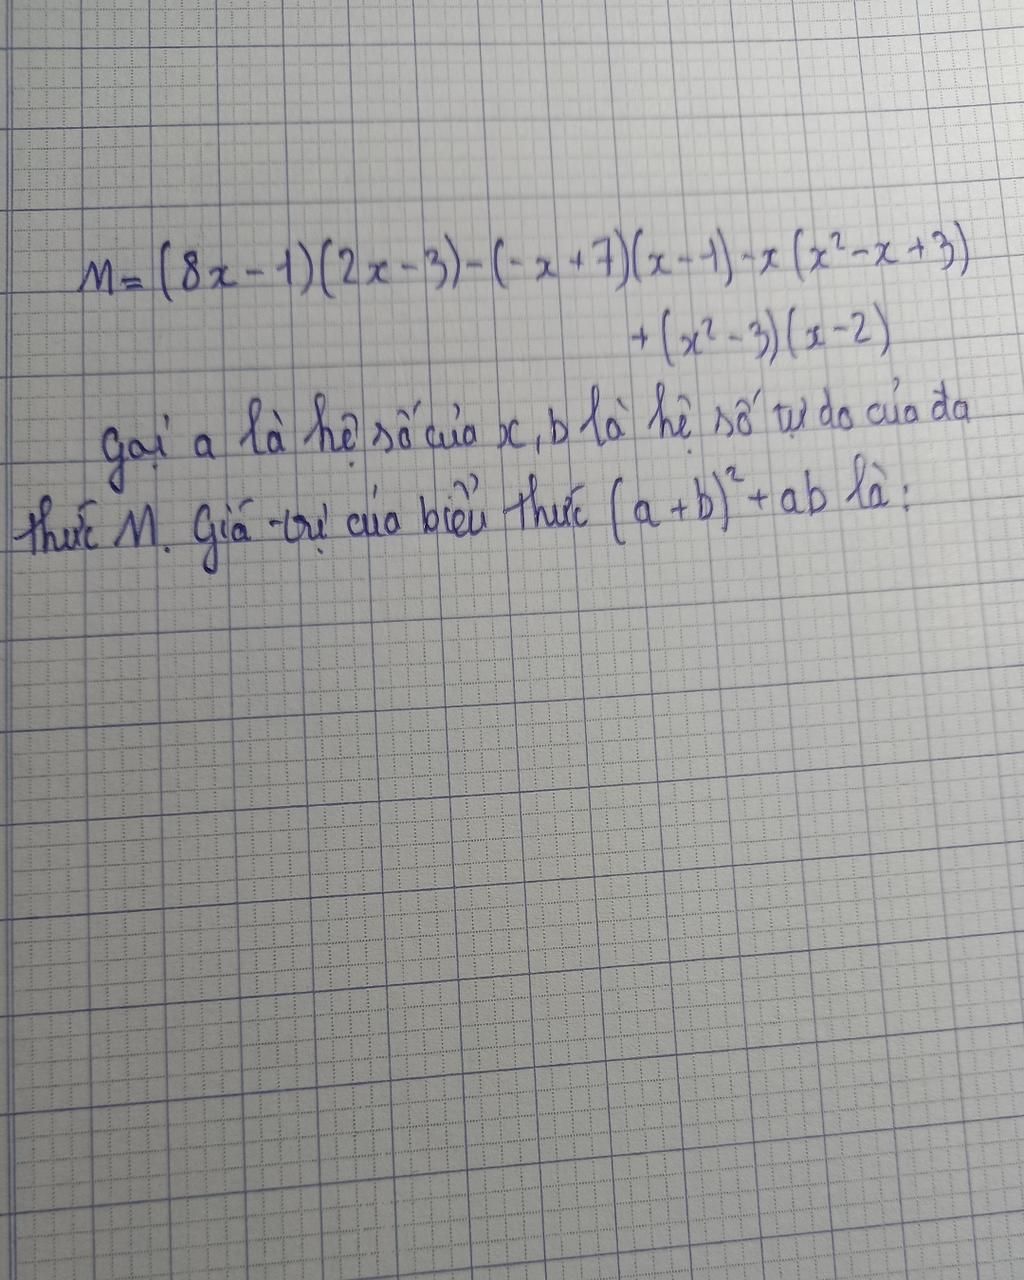 M = (8x - 1)(2x - 3) - (-x + 7)(x - 1) - x(x² - x + 3)
+ (x² - 3)(x - 2)
gọi a là hệ số của x, b là hệ số tự do của đa
thức M. Giá trị của biểu thức (a + b)² + ab là: